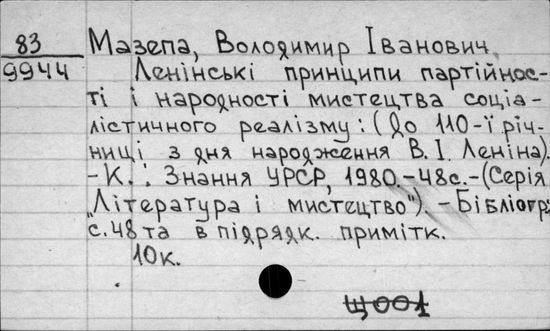 83
9944
Мазепа, Володимир Іванович
Ленінські принципи партійнос-
ті і народності мистецтва соціа-
лістичного реалізму: (До 110-ї річ-
ниці з дня народження В.І. Леніна).
-К.: Знання УРСР, 1980.-48с.-(Серія
"Література і мистецтво").-Бібліогр:
с.48 та в підрядк. примітк.
10к.
Щ001